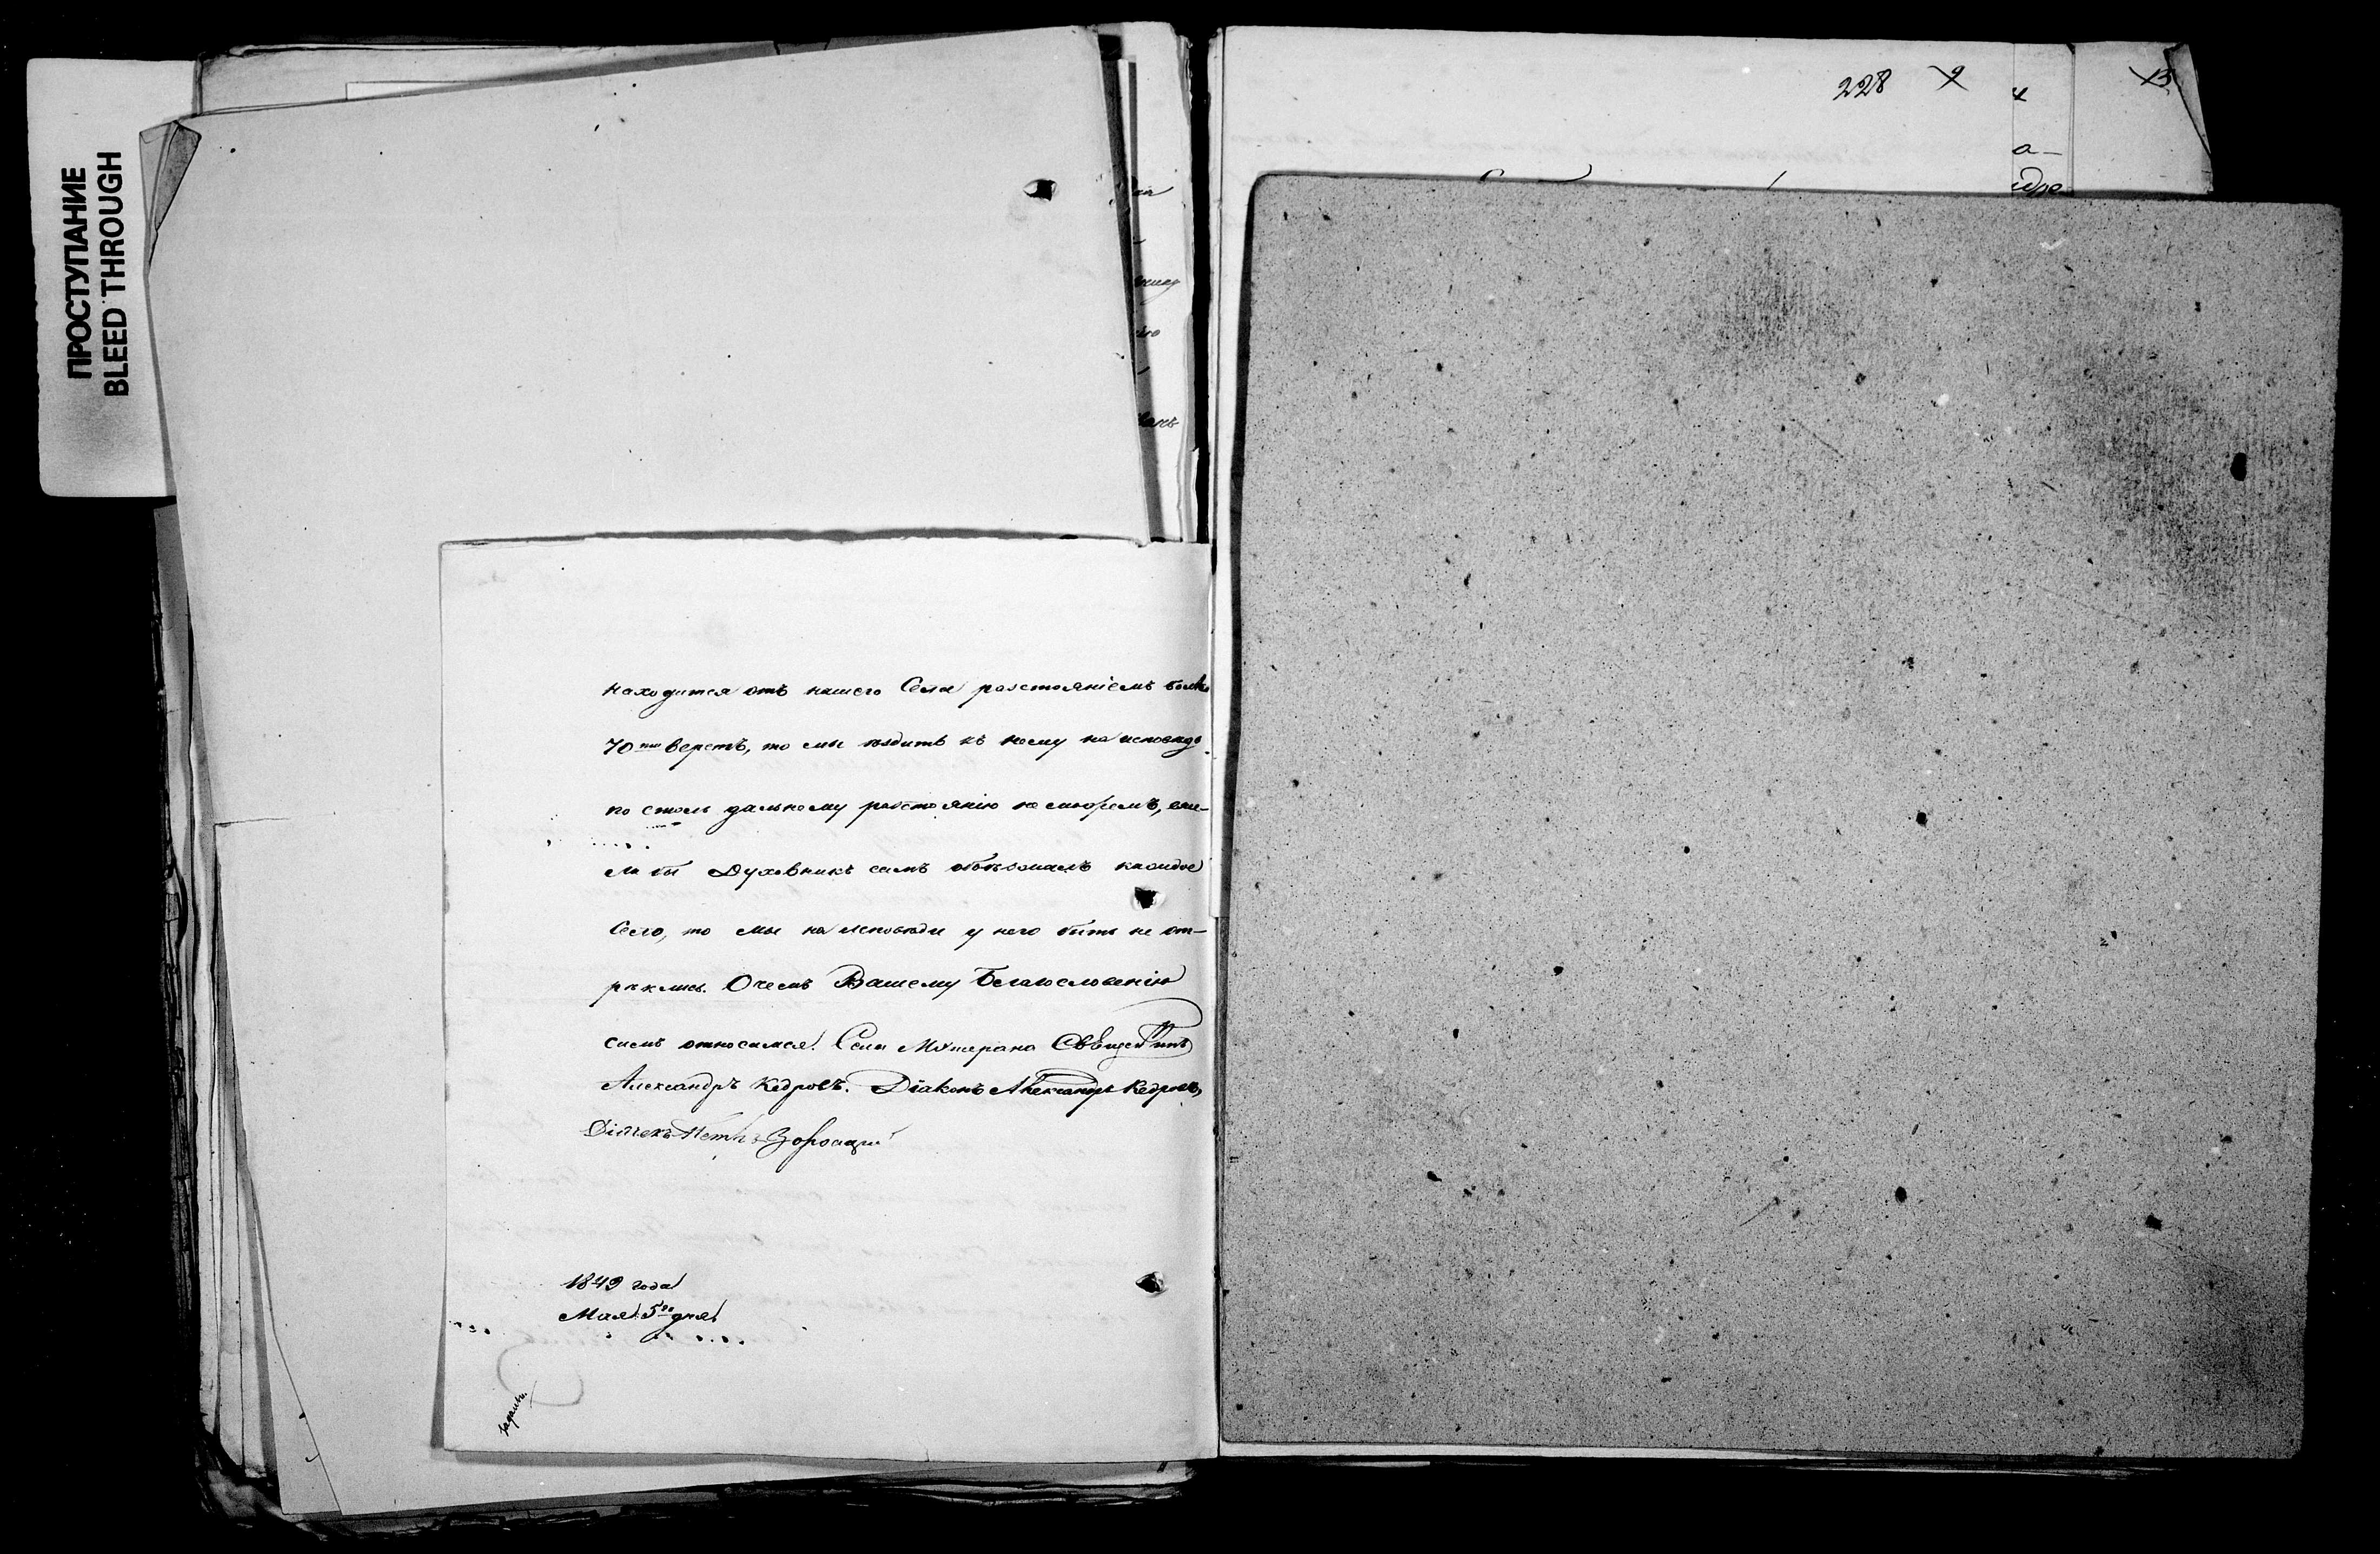 ПРОСТУПАНИЕ
BLEED THROUGH
228 9
13
а-
находится отъ нашего Села разстояніемъ более
70ти верстъ, то мы ездить къ нему на исповедь
по столь дальнему разстоянію не можемъ, еже-
ли бы Духовникъ самъ объезжалъ каждое
Село, то мы на исповеди у него быть не от-
реклись. О чемъ Вашему Благословенію
симъ относимся. Села Матерана Священникъ
Александръ Кедровъ. Діаконъ Александръ Кедровъ,
Дьячекъ Петръ
1849 года
Мая 5го дня